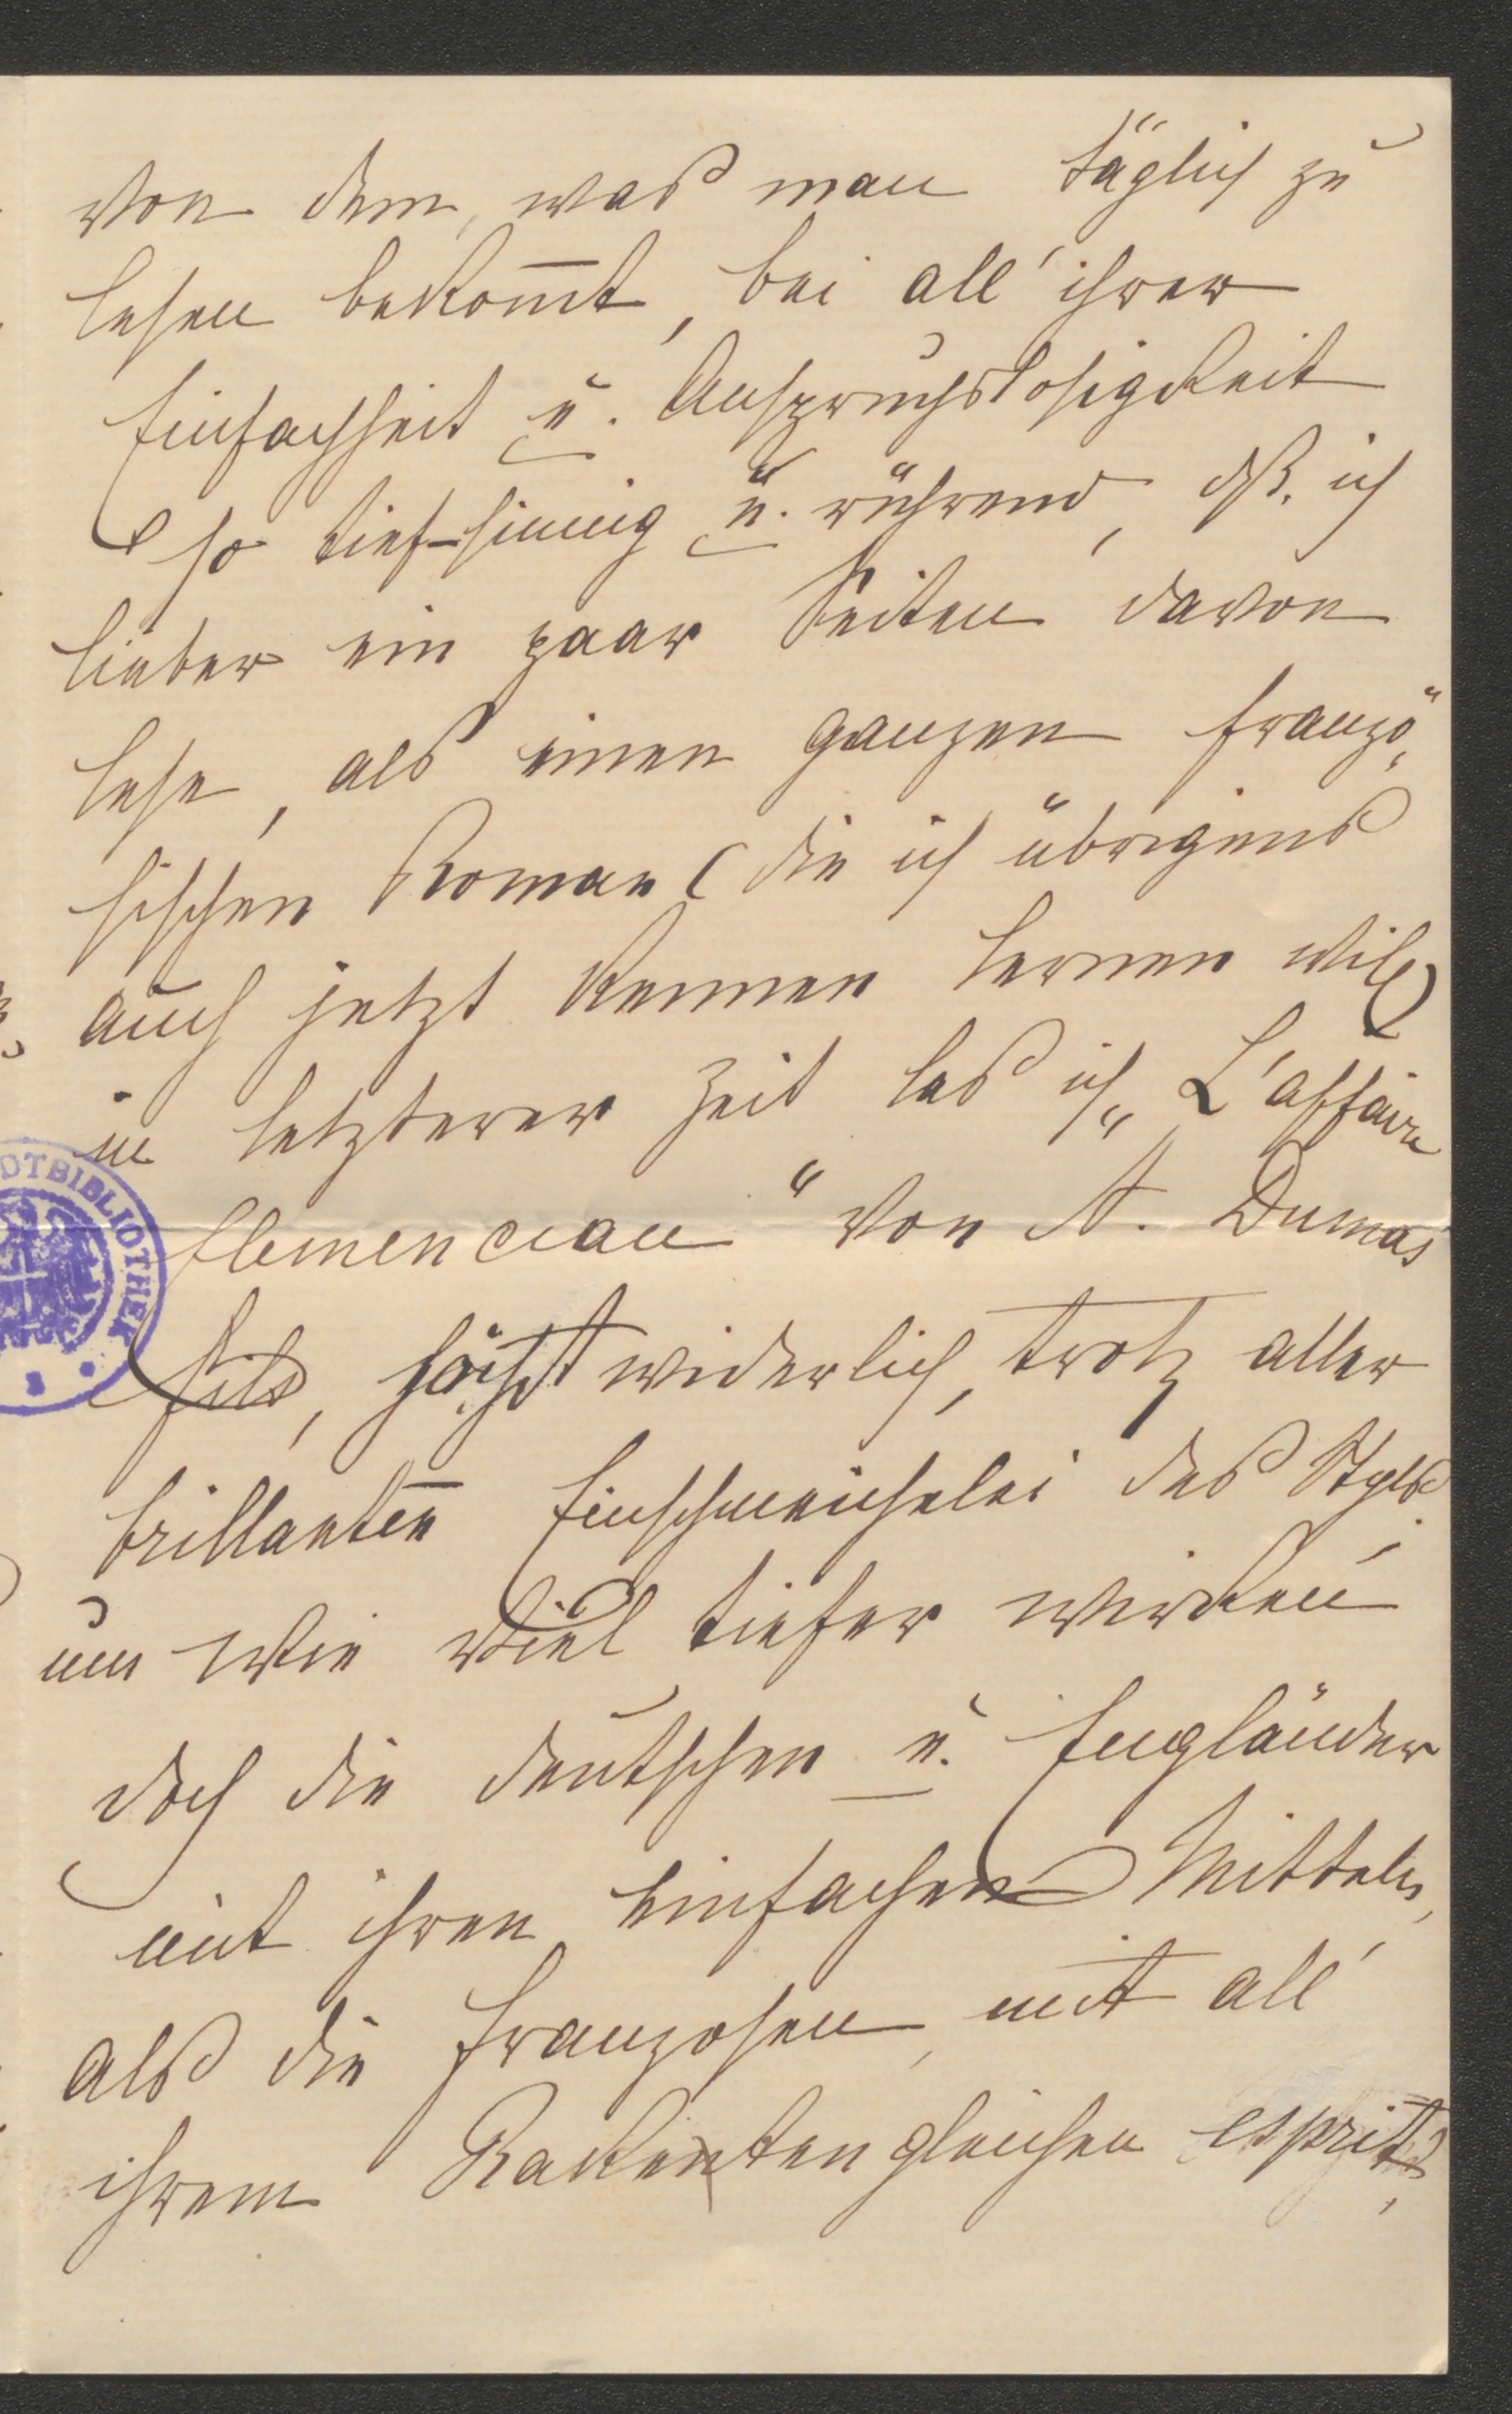 von dem, was man täglich zu
lesen bekom̅t, bei all' ihrer
Einfachheit u. Anspruchslosigkeit
so tief-sinnig u. rührend, dß. ich
lieber ein paar Seiten davon
lese, als einen ganzen franzö„
sischen Roman (die ich übrigens
auch jetzt kennen lernen will)
in letzterer Zeit las ich „L'affaire
Clemenceau“ von A. Dumas
fils, höchst widerlich, trotz aller
brillanten Einschmeichelei des Styls;
um wie viel tiefer wirken
doch die deutschen u. Engländer
mit ihren einfachen Mitteln,
als die Franzosen, mit all'
ihrem Raketengleichen esprit,
DTBIBLIOTHEK